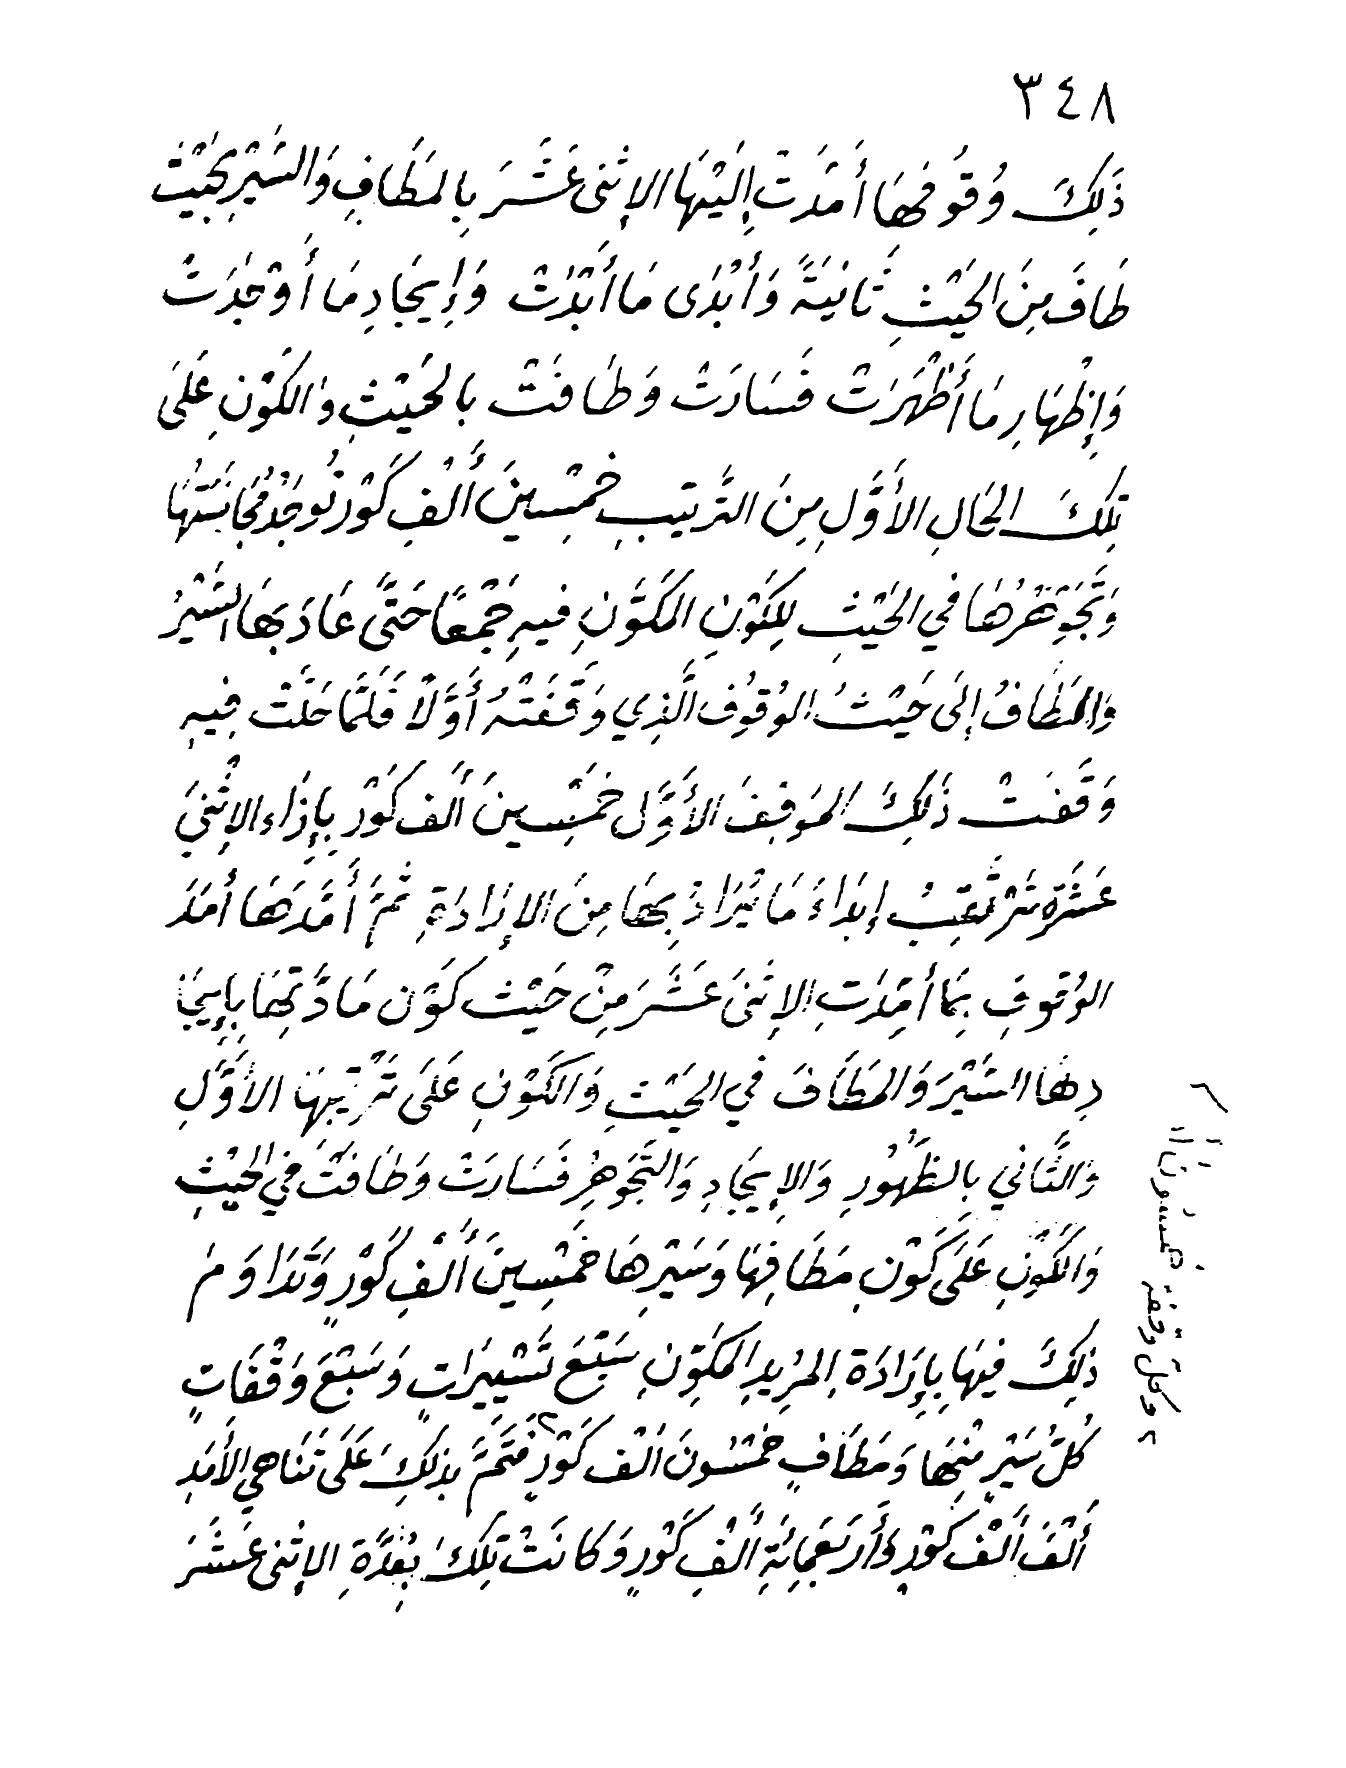 ٣٤٨
ذَلِكَ وُقُوفِهَا أَمَدَّتْ إِلَيْهَا الإِثْنَى عَشَرَ بِالمَطَافِ وَالسَيْرِ بِحَيْثُ
طَافَ مِنَ الحَيْثِ ثَانِيَةً وَأَبْدَى مَا أَبْدَتْ وَإِيجَادِ مَا أَوْجَدَتْ
وَإِظْهَارِ مَا أَظْهَرَتْ فَسَارَتْ وَطَافَتْ بِالحَيْثِ وَالكَوْنِ عَلَى
تِلْكَ الحَالِ الأَوَّلِ مِنَ التَّرتيبِ خَمْسِينَ أَلْفِ كَوْرٍ تُوجَدُ مُجَانَسَتُهَا
وَتَجَوْهَرُهَا في الحَيْثِ لِلكَوْنِ المُكَوَّنِ فِيهِ جَمْعًا حَتَّى عَادَ بِهَا السَّيْرُ
وَالمَطَافُ إِلَى حَيْثُ الوُقُوفِ الَّذِي وَقَفَتْهُ أَوَّلًا فَلَمَّا حَلَّتْ فِيهِ
وَقَفَتْ ذَلِكَ المَوقِفَ الأَوَّل خَمْسِينَ أَلْف كَوْر بِإِزَاءِ الإِثْنَيْ
عَشْرَةَ تَرْتَقِبُ إِبدَاءَ مَا يُرَادُ بِهَا مِنَ الإِرَادَةِ ثُمَّ أَمَدَّهَا أَمَدَ
الوُقُوفِ بِمَا أَمَدَّتِ الإِثْنَى عَشَرَ مِنْ حَيْثُ كَوْن مَادَّتِهَا بِإِيجَا
دِهَا السَيْرَ وَالمَطَافَ فِي الحَيْثِ وَالكَوْنِ عَلَى تَرْتِيبِهَا الأَوَّلِ
وَالثَّانِي بِالظُّهُورِ وَالإِيجَادِ وَالتَّجَوهُرِ فَسَارَتْ وَطَافَتْ فِي الحَيْثِ
وَالكَوْنِ عَلَى كَوْنِ مَطَافِهَا وَسَيْرِهَا خَمْسِينَ أَلْفِ كَوْرٍ وَتَدَاوَمَ
ذَلِكَ فِيهَا بِإِرَادَةِ المُرِيدِ المُكَوِّنِ سَبْعَ تَسْيِيرَاتٍ وَسَبْعَ وَقْفَاتٍ
كُلُّ سَيْرٍ مِنْهَا وَمَطَافٍ خَمْسُونَ أَلْف كَوْرٍ ٢ فَتَمَّ بِذَلِكَ عَلَى تَنَاهِي الأَمَدِ
أَلْفَ أَلْف كَوْرٍ وَأَربَعمِائَةِ أَلْفِ كَوْرٍ وَكَانَتْ تِلْكَ بِعُدَّةِ الإِثْنَى عَشَرَ
٢ وكل وقفة خمسون